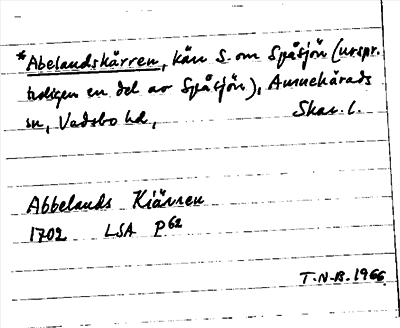 *Abelandskärren, kärr S. om Spåsjön (urspr.
troligen en del av Spåsjön), Amnehärads
sn, Vadsbo hd, Skar. l.
Abbelands Kiärren
1702 LSA P62
T-N-B. 1966